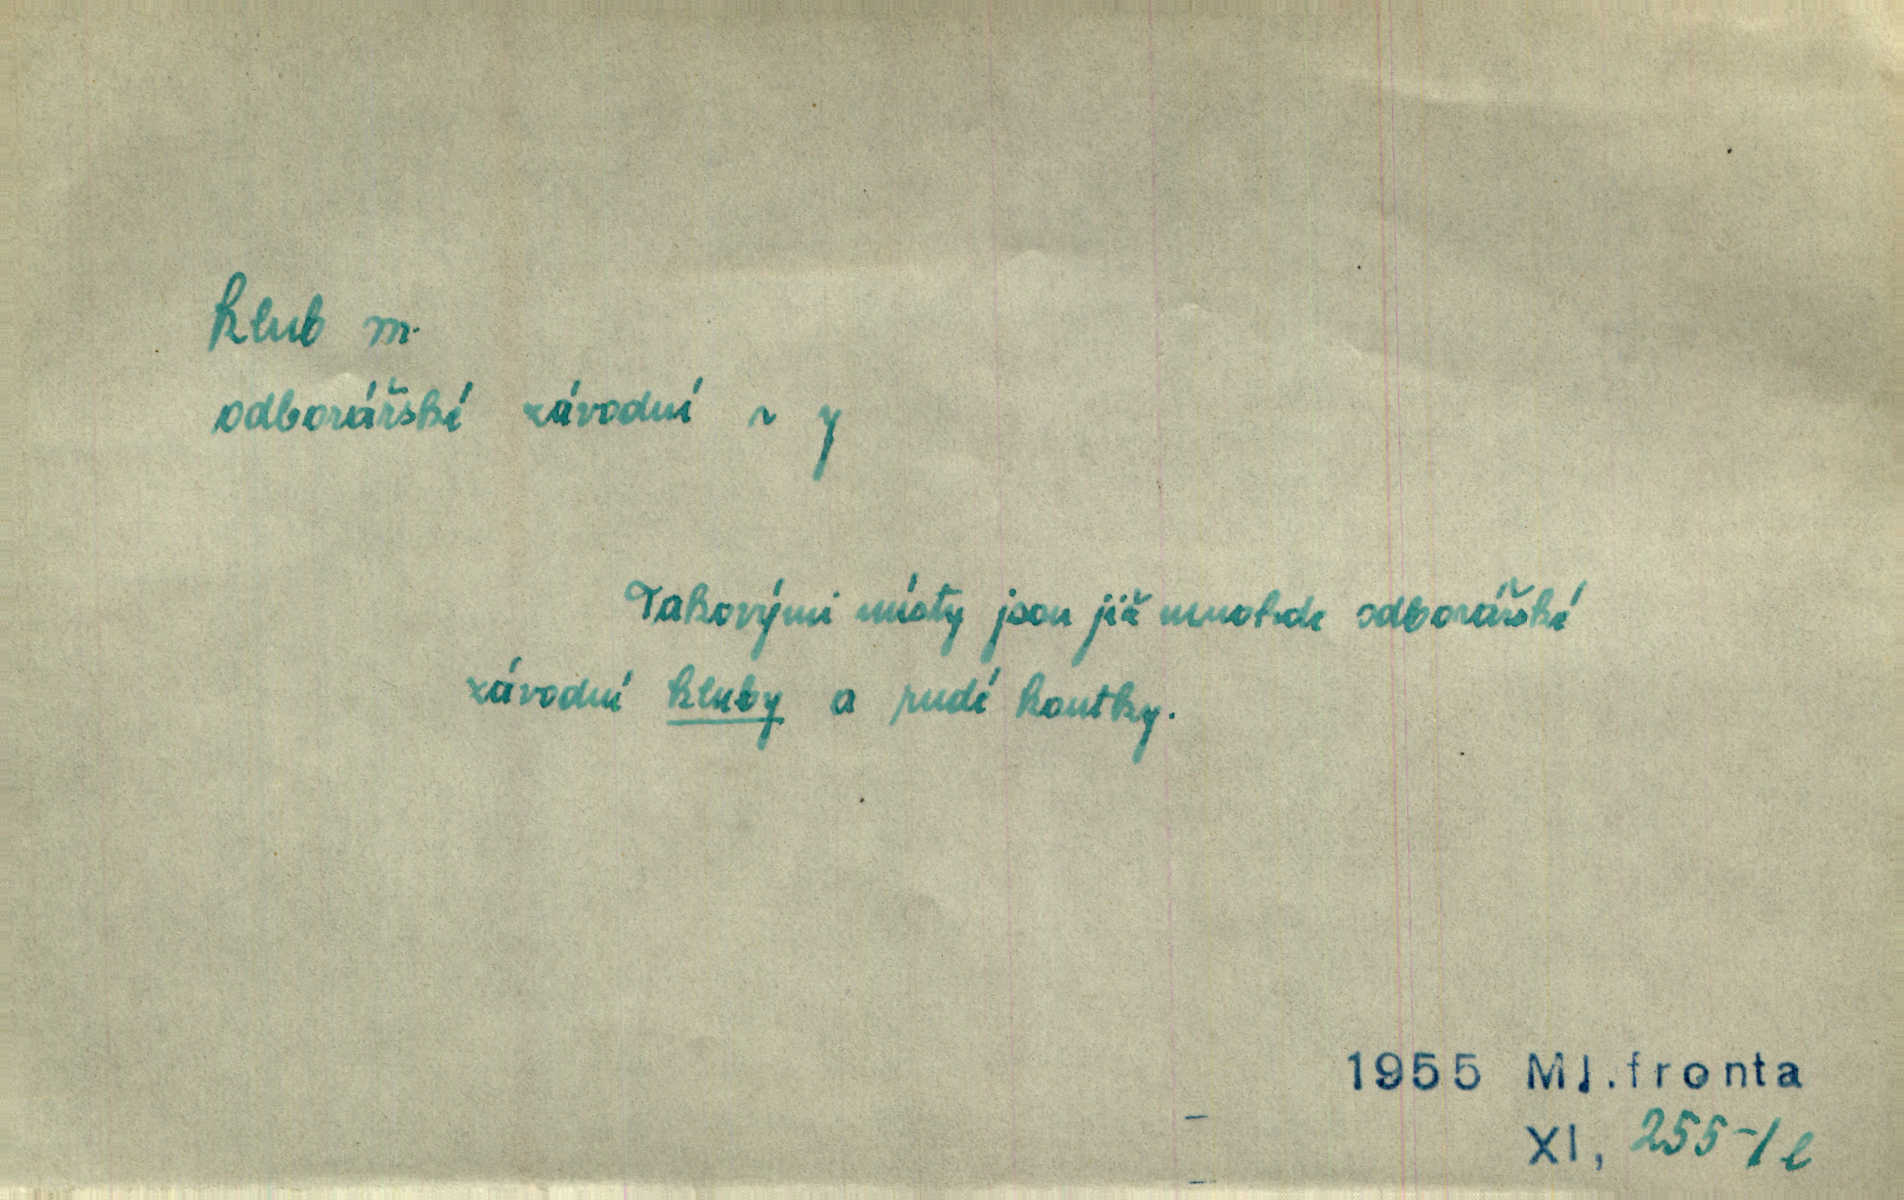 klub m.
odborářské závodní ~ y
Takovými místy jsou již mnohde odborářské
závodní kluby a rudé koutky.
1955 Ml.fronta
XI, 255-1 l